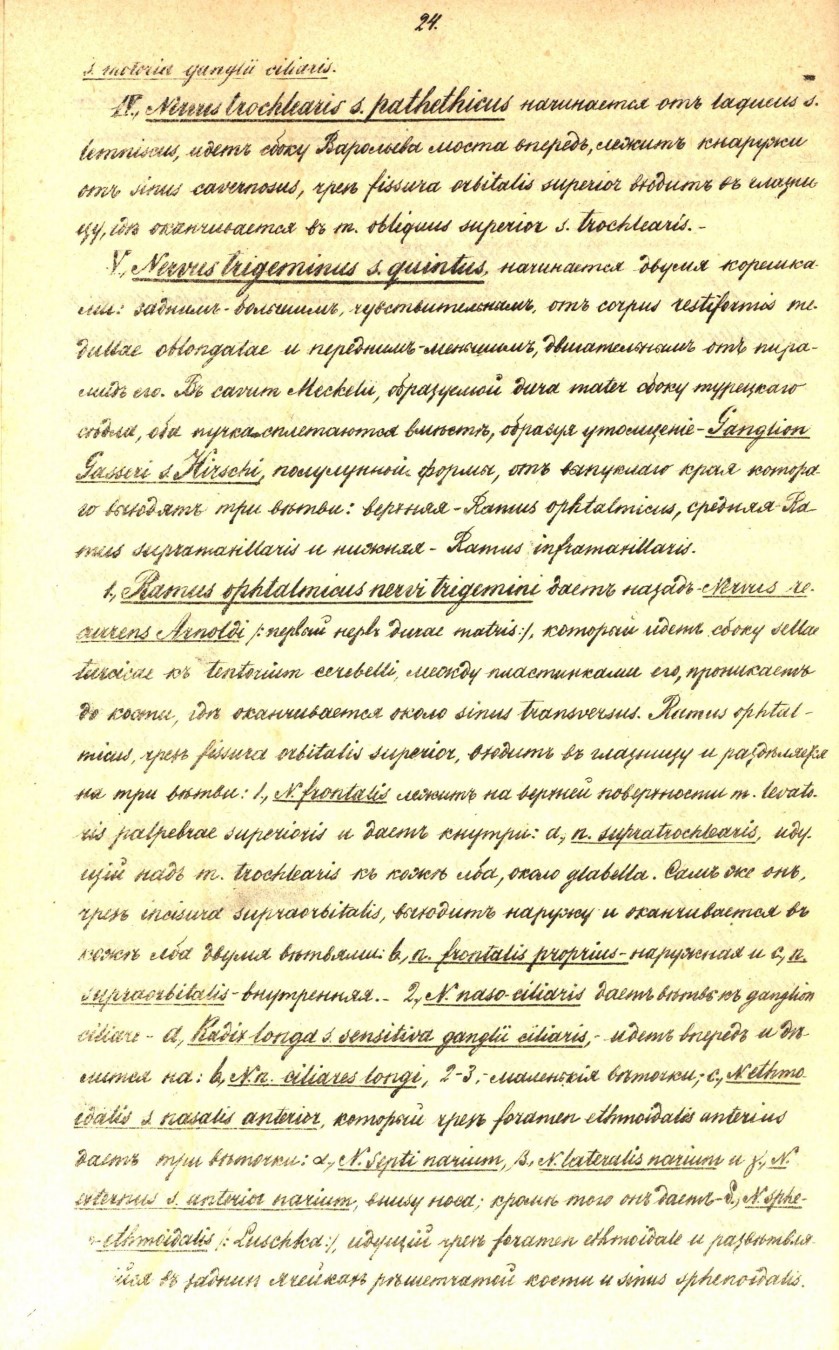 24.
s. motoria ganglii ciliaris.
IV., Nervus trochlearis s. pathethicus начинается отъ laqueus s.
lemniscus, идетъ сбоку Варольева моста впередъ, лежитъ кнаружи
отъ sinus cavernosus, чрезъ fissura orbitalis superior входитъ въ глазни
цу, гдѣ оканчивается въ m. obliquus superior s. trochlearis. -
V., Nervus trigeminus s. quintus, начинается двумя корешка-
ми: заднимъ-большимъ, чувствительнымъ, отъ corpus restiformis me-
dullae oblongatae и переднимъ-меньшимъ, двигательнымъ отъ пира-
мидъ его. Въ cavum Meckelii, образуемой dura mater сбоку турецкаго
сѣдла, оба пучка сплетаются вмѣстѣ, образуя утолщеніе - Ganglion
Gasseri s. Hirschi, полулунной формы, отъ выпуклаго края котора-
го выходятъ три вѣтви: верхняя - Ramus ophtalmicus, средняя Ra-
mus supramaxillaris и нижняя - Ramus inframaxillaris.
1., Ramus ophtalmicus nervi trigemini даетъ назадъ - Nervus re-
currens Arnoldi /: первый нервъ durae matris :/, который идетъ сбоку sellae
turcicae къ tentorium cerebelli, между пластинками его, проникаетъ
до кости, гдѣ оканчивается около sinus transversus. Ramus ophtal-
micus, чрезъ fissura orbitalis superior, входитъ въ глазницу и раздѣляется
на три вѣтви: 1., N. frontalis лежитъ на верхней поверхности m. levato-
ris palpebrae superioris и даетъ кнутри: a., n. supratrochlearis, иду
щій надъ m. trochlearis къ кожѣ лба, около glabella. Самъ же онъ,
чрезъ incisura supraorbitalis, выходитъ наружу и оканчивается въ
кожѣ лба двумя вѣтвями: b., n. frontalis proprius - наружная и c., n.
supraorbitalis - внутренняя. - 2., N. naso-ciliaris даетъ вѣтвь къ ganglion
ciliare - a., Radix longa s. sensitiva ganglii ciliaris, - идетъ впередъ и дѣ
лится на: b., N.n. ciliares longi, 2-3, - маленькія вѣточки; - c., N. ethmo
idalis s. nasalis anterior, который чрезъ foramen ethmoidalis anterius
даетъ три вѣточки: α., N. septi narium, β., N. lateralis narium и γ., N.
externus s. anterior narium, внизу носа; кромѣ того онъ даетъ - δ., N. sphe-
no-ethmoidalis /: Luschka :/, идущій чрезъ foramen ethmoidale и развѣтвля
въ заднихъ ячейкахъ рѣшетчатой кости и sinus sphenoidalis.